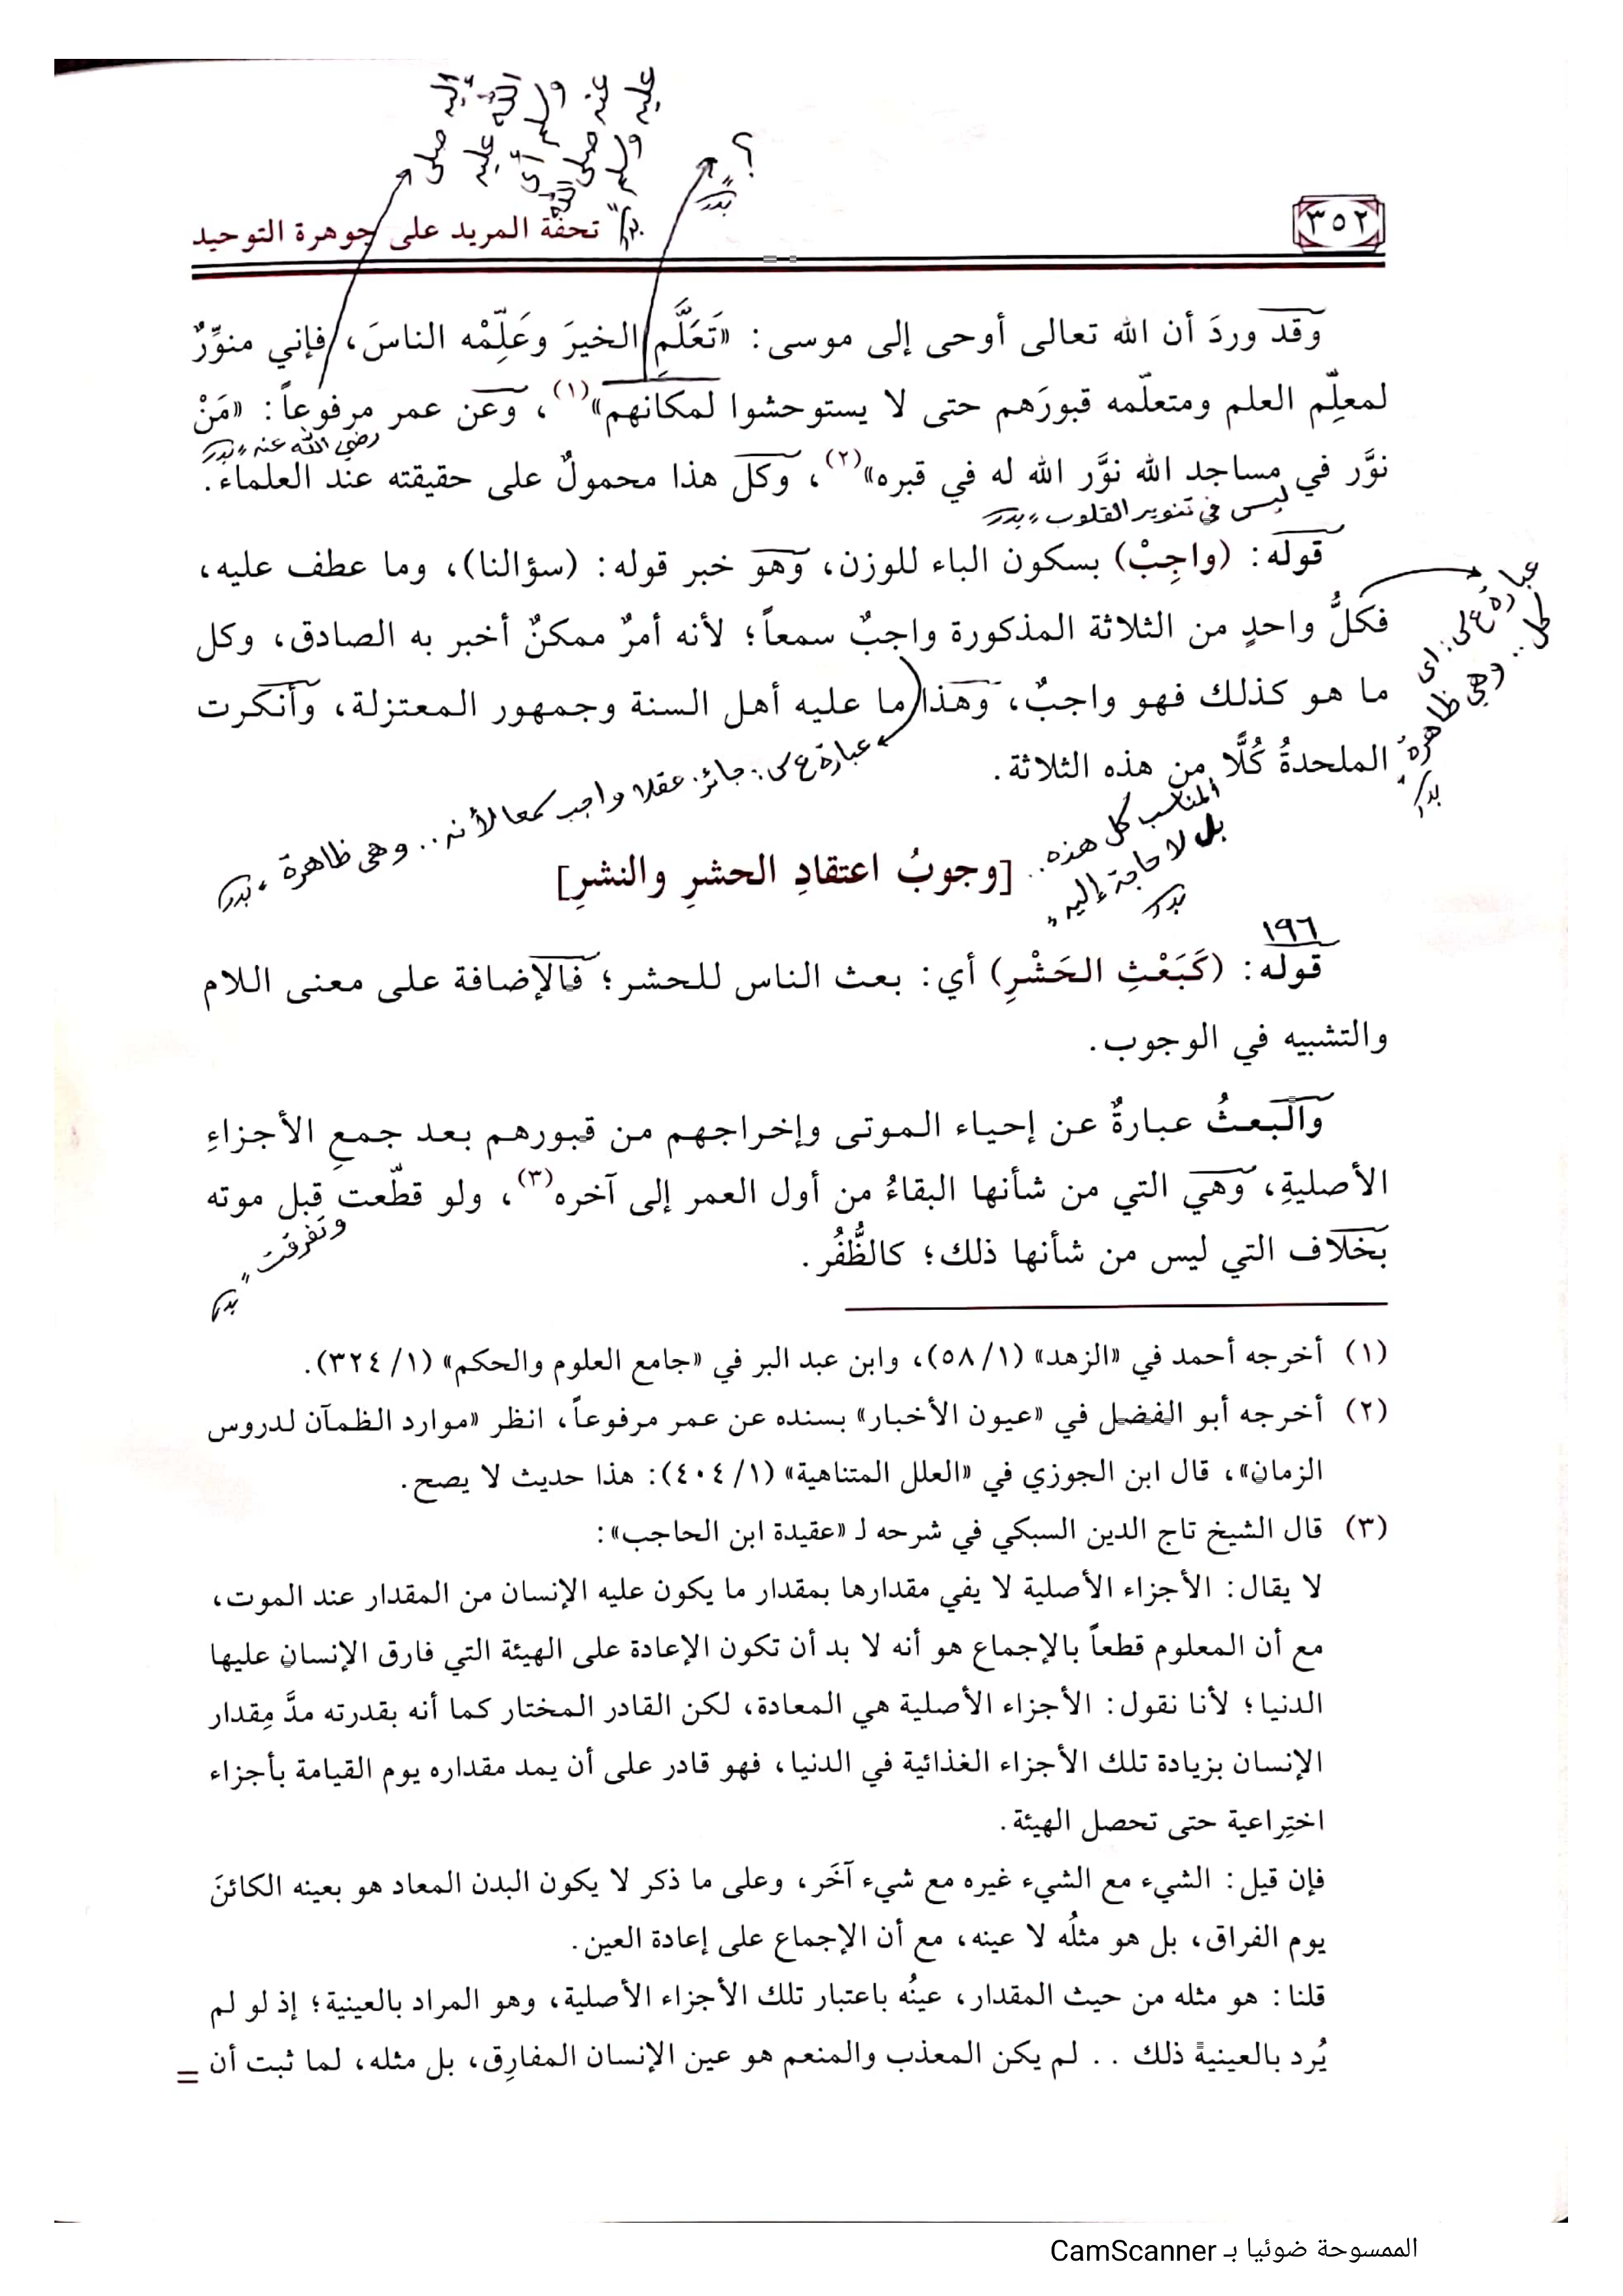 إليه صلى
الله عليه
وسلم أى
عنه صلى الله
عليه وسلم " بدر
؟
" بدر
٣٥٢
تحفة المريد على جوهرة التوحيد
وقد وردَ أن الله تعالى أوحى إلى موسى: «تَعَلَّمِ الخيرَ وعَلِّمْه الناسَ، فإني منوِّرٌ
لمعلِّم العلم ومتعلّمه قبورَهم حتى لا يستوحشوا لمكانهم»(١)، وعن عمر مرفوعاً: «مَنْ
رضى الله عنه " بدر
نوَّر في مساجد الله نوَّر الله له في قبره»(٢)، وكل هذا محمولٌ على حقيقته عند العلماء.
ليس فى تنوير القلوب " بدر
قوله: (واجِبْ) بسكون الباء للوزن، وهو خبر قوله: (سؤالنا)، وما عطف عليه،
فكلُّ واحدٍ من الثلاثة المذكورة واجبٌ سمعاً؛ لأنه أمرٌ ممكنٌ أخبر به الصادق، وكل
عبارة ع لى: اى
كل.. وهى ظاهرة "
بدر
ما هو كذلك فهو واجبٌ، وهذا ما عليه أهل السنة وجمهور المعتزلة، وأنكرت
الملحدةُ كُلًّا من هذه الثلاثة.
عبارة ع لى: جائز عقلا واجب سمعا لأنه.. وهى ظاهرة " بدر
المناسب كل هذه..
بل لا حاجة إليه "
بدر
[وجوبُ اعتقادِ الحشرِ والنشرِ]
١٩٦
قوله: (كَبَعْثِ الحَشْرِ) أي: بعث الناس للحشر؛ فالإضافة على معنى اللام
والتشبيه في الوجوب.
والبعثُ عبارةٌ عن إحياء الموتى وإخراجهم من قبورهم بعد جمعِ الأجزاءِ
الأصليةِ، وهي التي من شأنها البقاءُ من أول العمر إلى آخره(٣)، ولو قطّعت قبل موته
وتفرقت "
بدر
بخلاف التي ليس من شأنها ذلك؛ كالظُّفُر.
(١) أخرجه أحمد في «الزهد» (٥٨/١)، وابن عبد البر في «جامع العلوم والحكم» (٣٢٤/١).
(٢) أخرجه أبو الفضل في «عيون الأخبار» بسنده عن عمر مرفوعاً، انظر «موارد الظمآن لدروس
الزمان»، قال ابن الجوزي في «العلل المتناهية» (٤٠٤/١): هذا حديث لا يصح.
(٣) قال الشيخ تاج الدين السبكي في شرحه لـ «عقيدة ابن الحاجب»:
لا يقال: الأجزاء الأصلية لا يفي مقدارها بمقدار ما يكون عليه الإنسان من المقدار عند الموت،
مع أن المعلوم قطعاً بالإجماع هو أنه لا بد أن تكون الإعادة على الهيئة التي فارق الإنسان عليها
الدنيا؛ لأنا نقول: الأجزاء الأصلية هي المعادة، لكن القادر المختار كما أنه بقدرته مدَّ مِقدار
الإنسان بزيادة تلك الأجزاء الغذائية في الدنيا، فهو قادر على أن يمد مقداره يوم القيامة بأجزاء
اختِراعية حتى تحصل الهيئة.
فإن قيل: الشيء مع الشيء غيره مع شيء آخَر، وعلى ما ذكر لا يكون البدن المعاد هو بعينه الكائنَ
يوم الفراق، بل هو مثلُه لا عينه، مع أن الإجماع على إعادة العين.
قلنا: هو مثله من حيث المقدار، عينُه باعتبار تلك الأجزاء الأصلية، وهو المراد بالعينية؛ إذ لو لم
يُرد بالعينية ذلك .. لم يكن المعذب والمنعم هو عين الإنسان المفارِق، بل مثله، لما ثبت أن =
الممسوحة ضوئيا بـ CamScanner